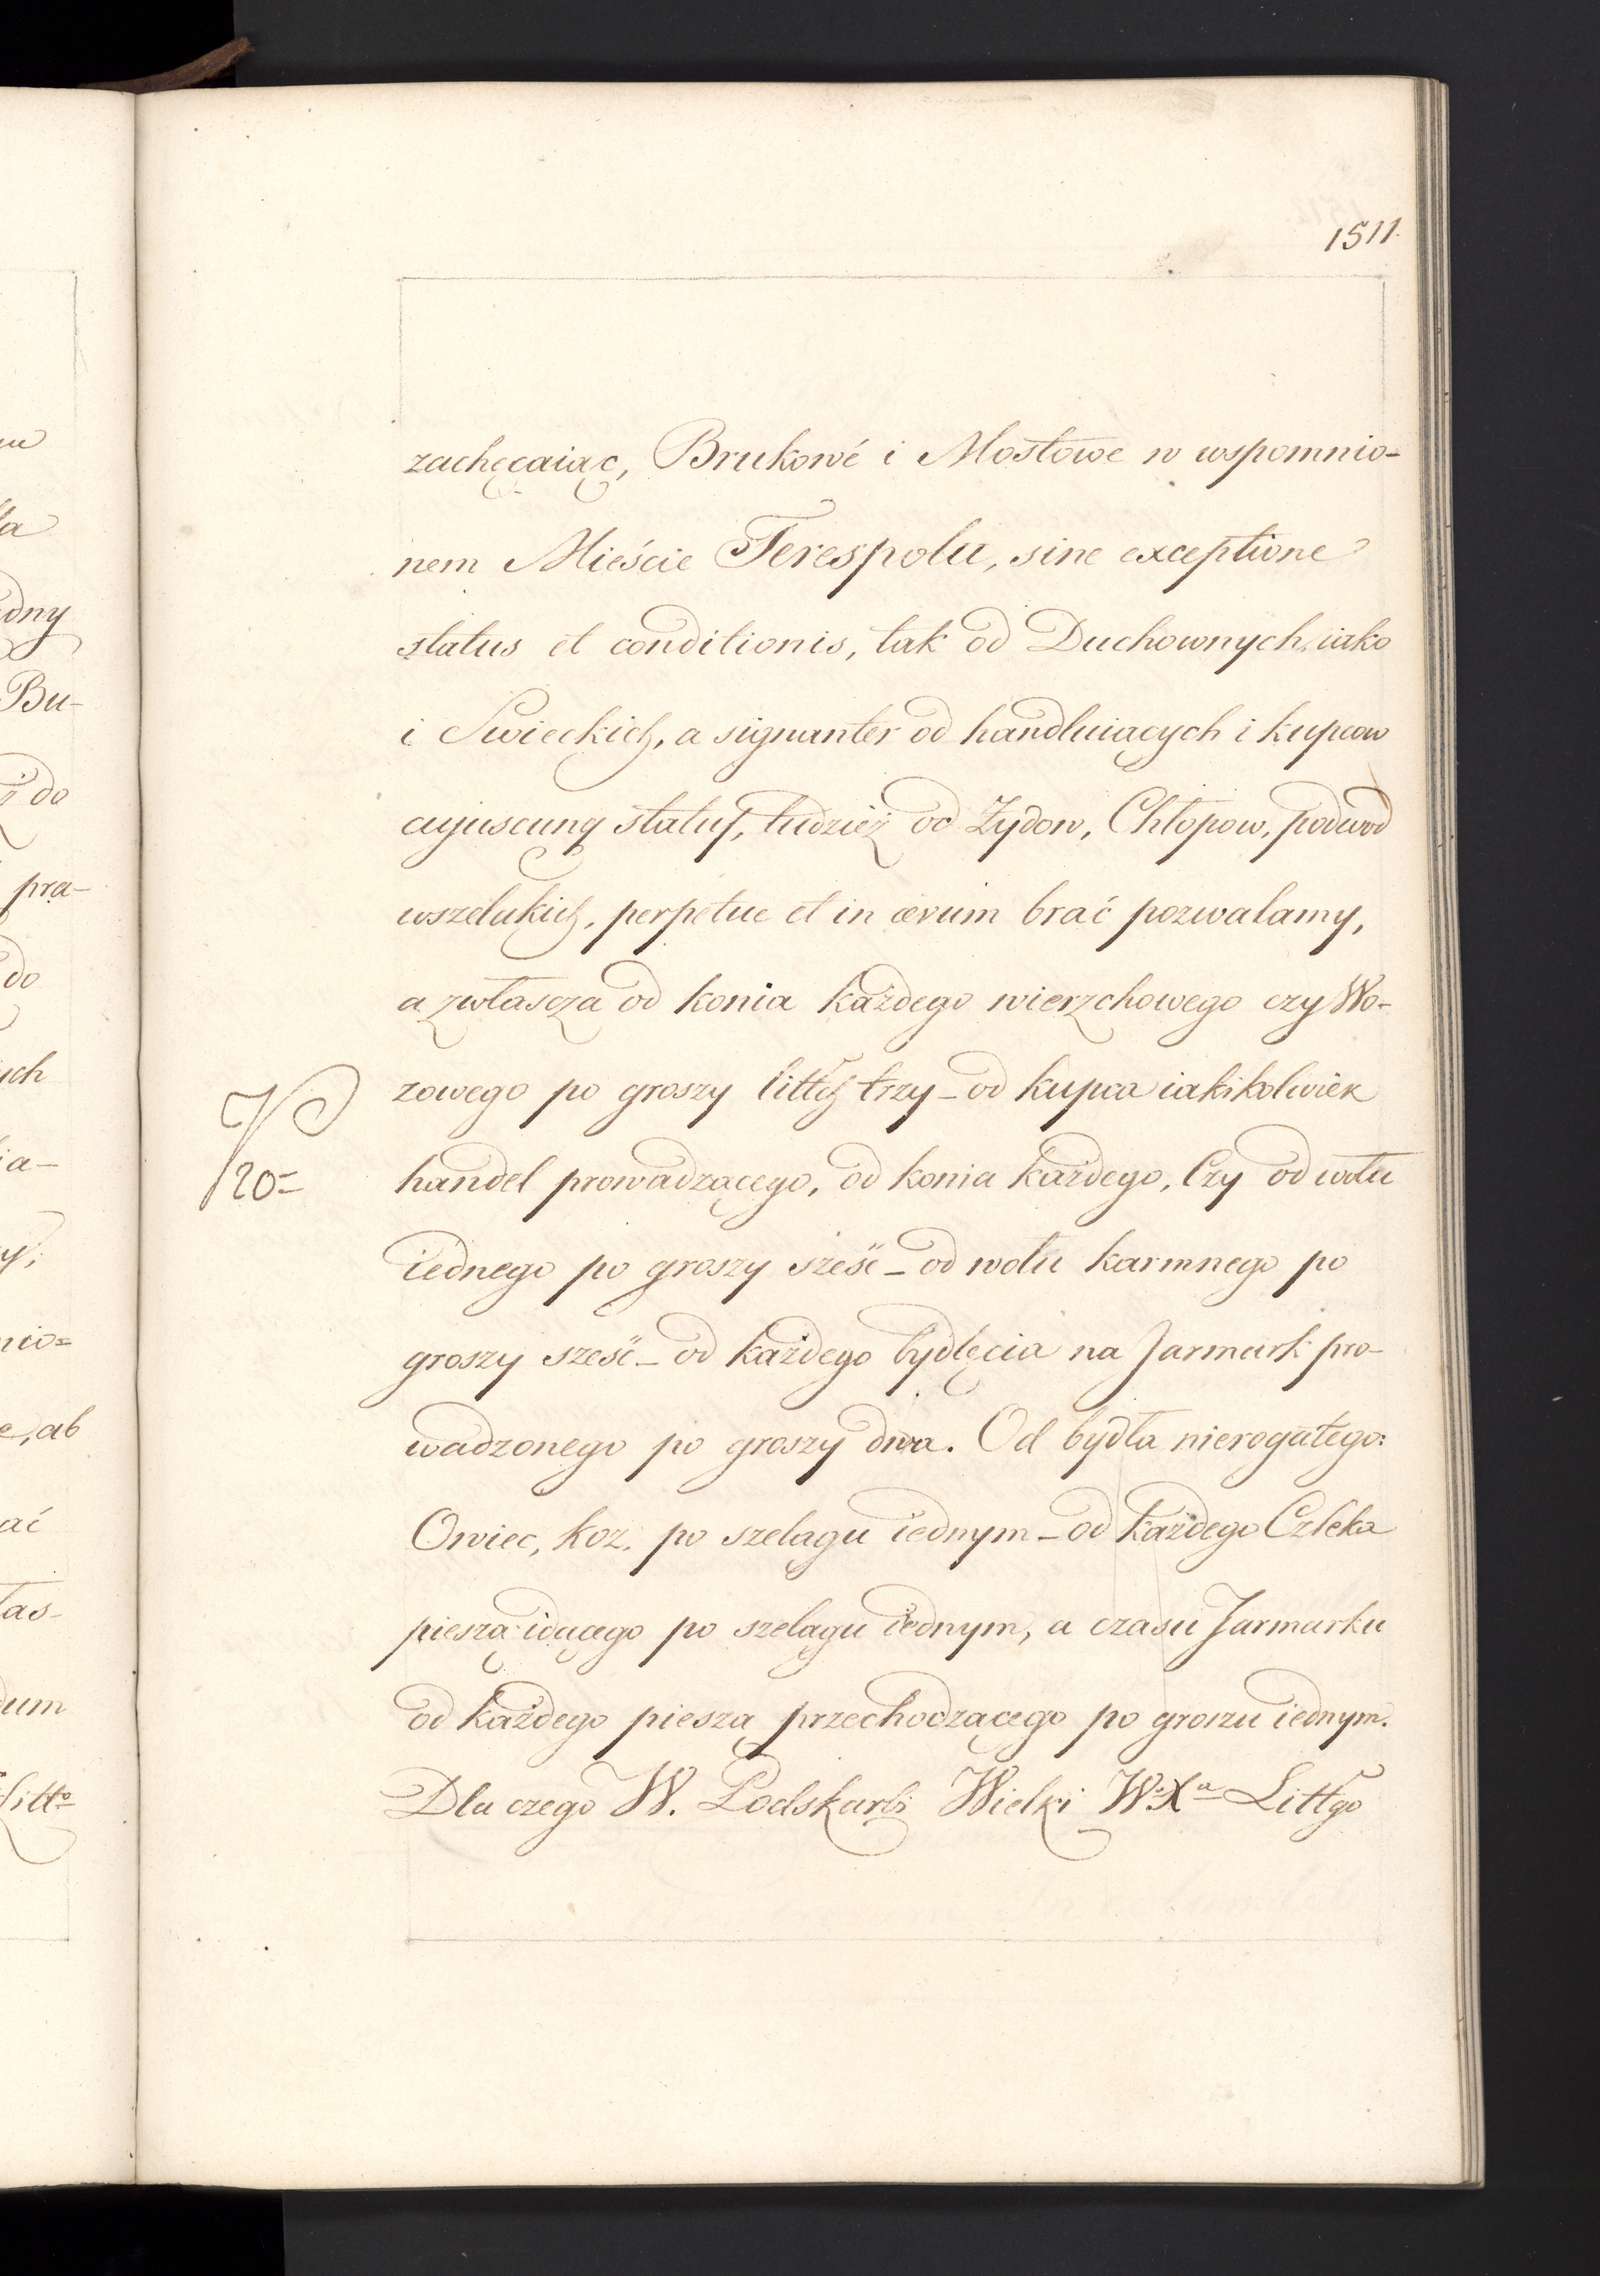 1511.
zachęcaiąc, Brukowé i Mostowe w wspomnio-
nem Mieście Terespolu, sine exceptione
status et conditionis, tak od Duchownych, iako
i Swieckich, a signanter od handluiących i kupcow
cujuscunq status, tudzież od Zydow, Chłopow, podwod
wszelakich, perpetue et in ævum brać pozwalamy,
a zwłascza od konia każdego wierzchowego czy Wo-
zowego po groszy littch trzy – od kupca iakikolwiek
handel prowadzącego, od konia każdego, Czy od wołu
iednego po groszy sześć – od wołu karmnego po
groszy sześć – od każdego bydlęcia na Jarmark pro-
wadzonego po groszy dwa. Od bydła nierogatego:
Owiec, koz, po szelągu iednym – od każdego Czleka
pieszą idącego po szelągu iednym, a czasu Jarmarku
od każdego pieszą przechodzącego po groszu iednym.
Dla czego W. Podskarbi Wielki W. Xa Littgo
20=
Bu-
do
pra-
do
ych
ia-
nio=
e, ab
ać
łas-
dum